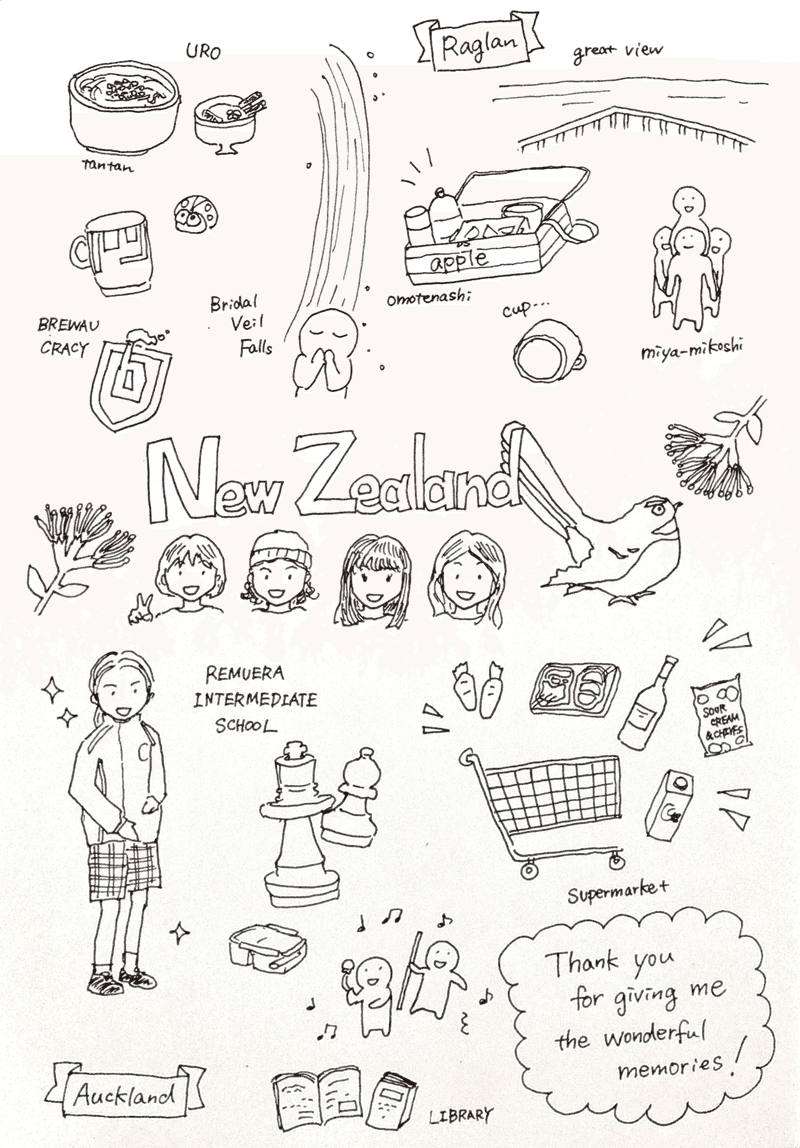 URO
Raglan
great view
tantan
apple
omotenashi
Bridal
Veil
Falls
cup...
miya-mikoshi
BREWAU
CRACY
New Zealand
REMUERA
INTERMEDIATE
SCHOOL
SOUR
CREAM
& CHIVES
Supermarket
Thank you
for giving me
the wonderful
memories!
Auckland
LIBRARY